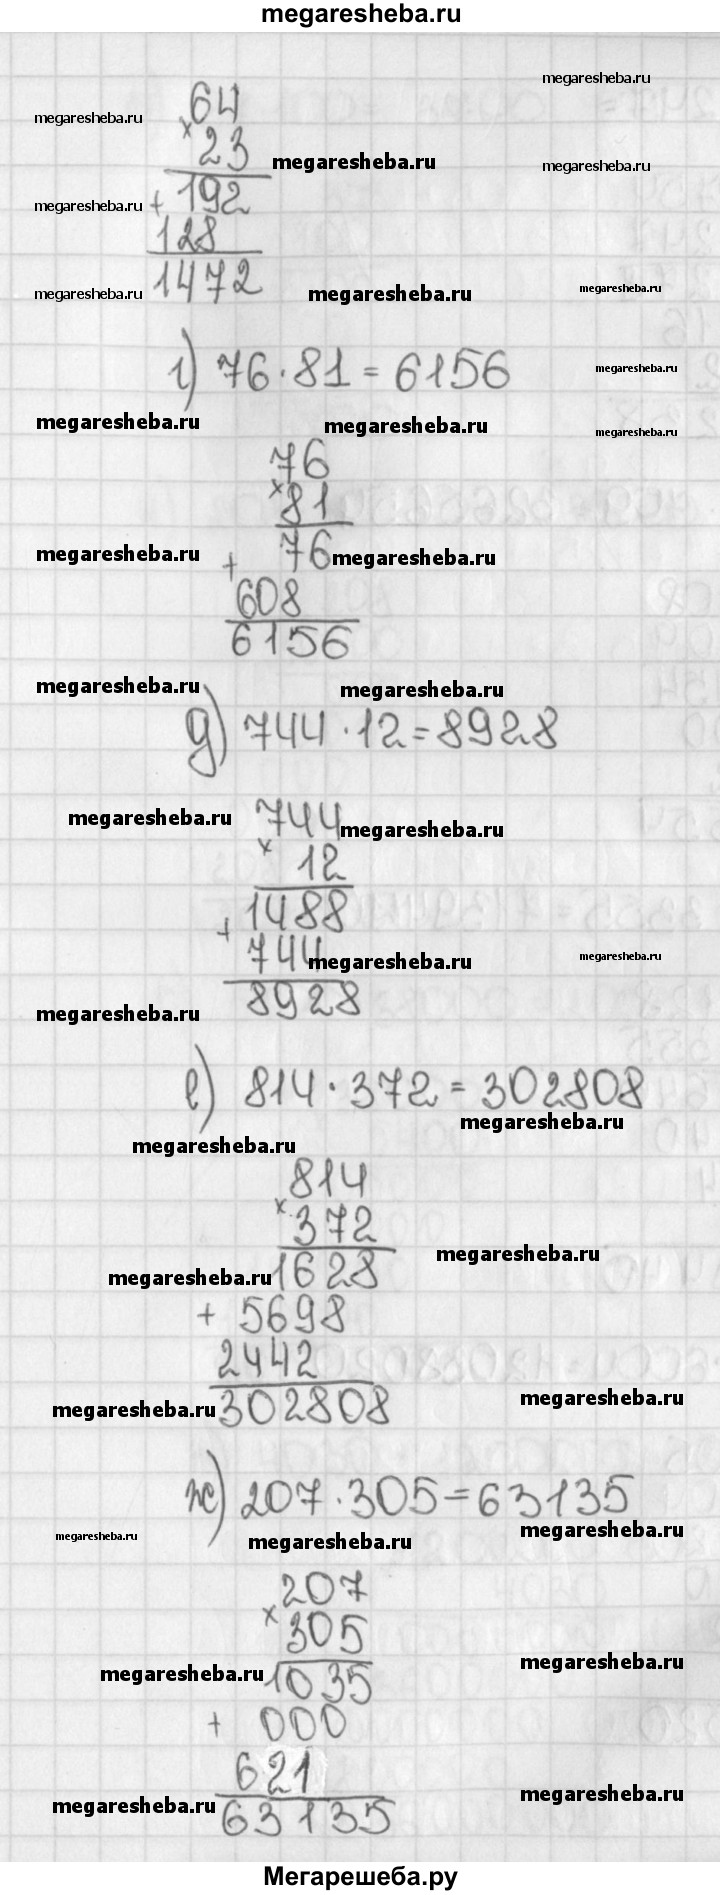 megaresheba.ru
64
megaresheba.ru
megaresheba.ru
× 23
megaresheba.ru
megaresheba.ru
+ 192
megaresheba.ru
128
1472
megaresheba.ru
megaresheba.ru
megaresheba.ru
г) 76·81=6156
megaresheba.ru
megaresheba.ru
megaresheba.ru
megaresheba.ru
76
× 81
+ 76
megaresheba.ru
megaresheba.ru
608
6156
megaresheba.ru
megaresheba.ru
д) 744·12=8928
744
megaresheba.ru
megaresheba.ru
× 12
+ 1488
744
megaresheba.ru
megaresheba.ru
8928
megaresheba.ru
е) 814·372=302808
megaresheba.ru
megaresheba.ru
814
× 372
megaresheba.ru
1628
megaresheba.ru
+ 5698
2442
302808
megaresheba.ru
megaresheba.ru
ж) 207·305=63135
megaresheba.ru
megaresheba.ru
megaresheba.ru
207
× 305
megaresheba.ru
1035
megaresheba.ru
+ 000
621
63135
megaresheba.ru
megaresheba.ru
Мегарешеба.ру